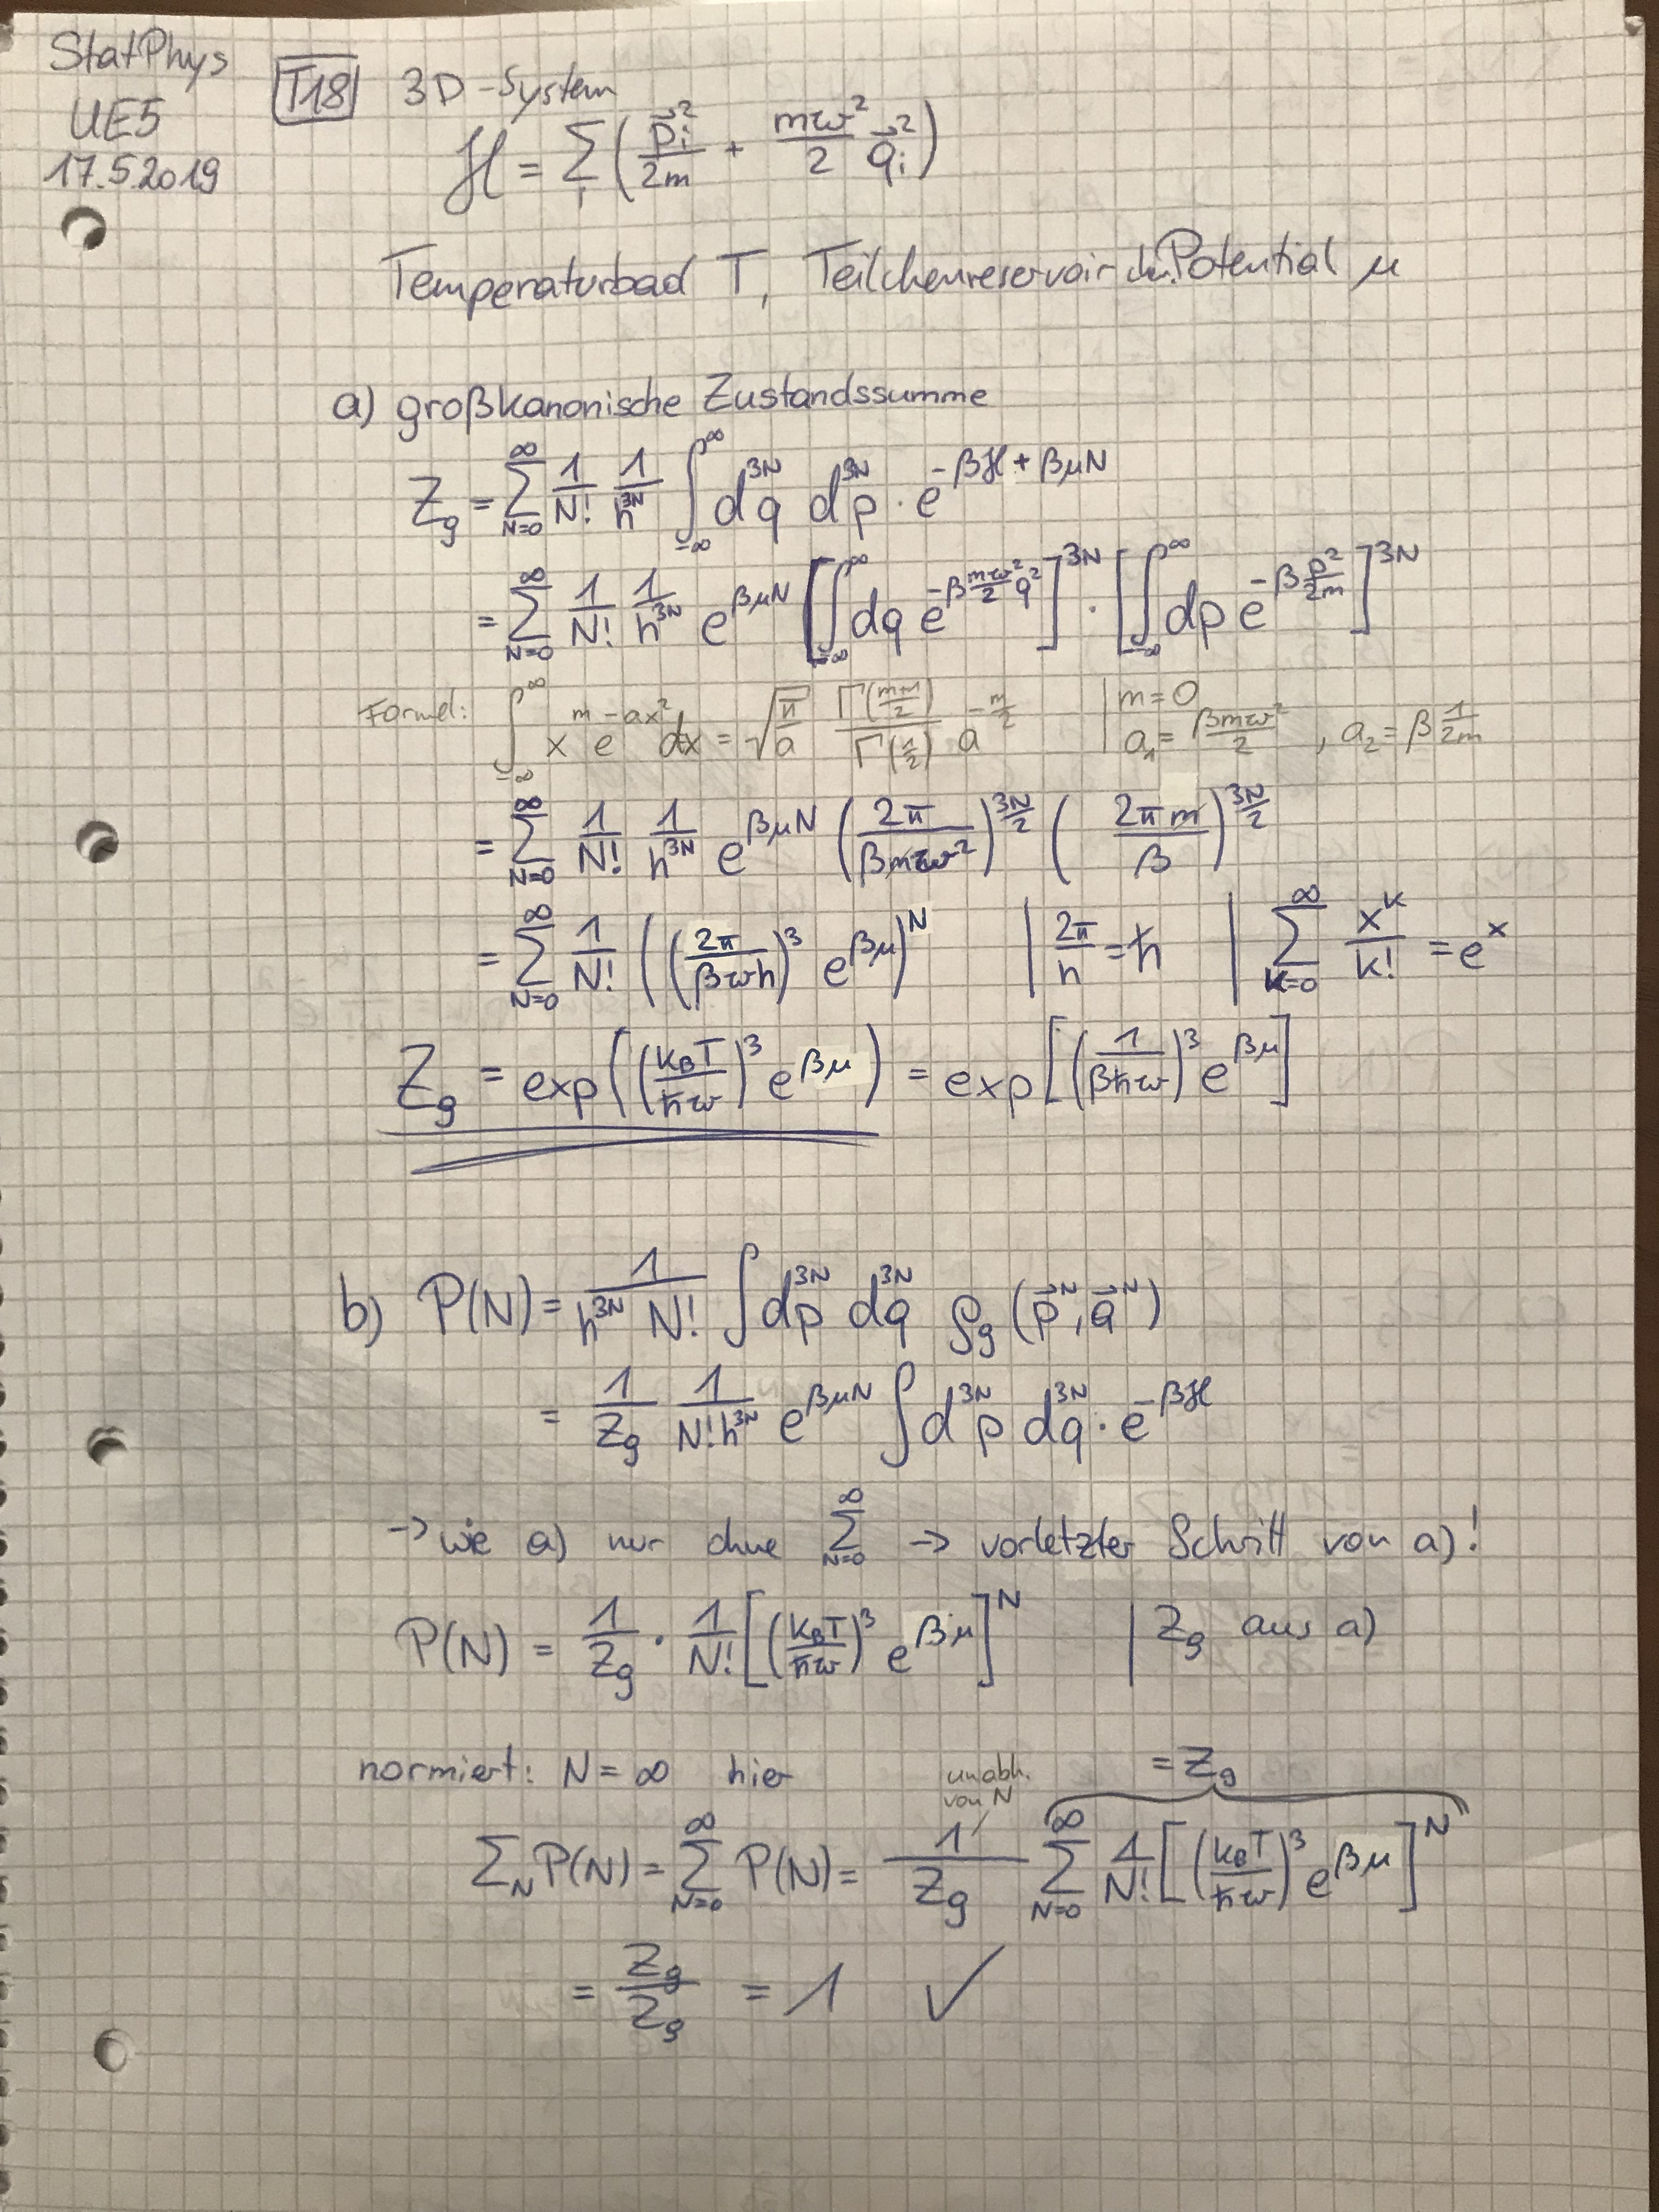 StatPhys
UE5
17.5.2019
T18 3D-System
ℋ = ∑_i ( p⃗_i²/2m + mω²/2 q⃗_i² )
Temperaturbad T, Teilchenreservoir chem. Potential μ
a) großkanonische Zustandssumme
Z_g = ∑_{N=0}^∞ 1/N! 1/h^{3N} ∫_{-∞}^∞ d^{3N}q d^{3N}p · e^{-βℋ + βμN}
= ∑_{N=0}^∞ 1/N! 1/h^{3N} e^{βμN} [ ∫_{-∞}^∞ dq e^{-β mω²/2 q²} ]^{3N} · [ ∫_{-∞}^∞ dp e^{-β p²/2m} ]^{3N}
Formel: ∫_{-∞}^∞ x^m e^{-ax²} dx = √(π/a) Γ((m+1)/2)/Γ(1/2) a^{-m/2} | m = 0 a₁ = βmω²/2 , a₂ = β 1/2m
= ∑_{N=0}^∞ 1/N! 1/h^{3N} e^{βμN} ( 2π/βmω² )^{3N/2} ( 2πm/β )^{3N/2}
= ∑_{N=0}^∞ 1/N! ( ( 2π/βωh )³ e^{βμ} )^N | 2π/h = ħ | ∑_{k=0}^∞ x^k/k! = e^x
Z_g = exp( ( k_BT/ħω )³ e^{βμ} ) = exp[ ( 1/βħω )³ e^{βμ} ]
b) P(N) = 1/(h^{3N} N!) ∫ d^{3N}p d^{3N}q ρ_g (p⃗^N, q⃗^N)
= 1/Z_g 1/(N! h^{3N}) e^{βμN} ∫ d^{3N}p d^{3N}q · e^{-βℋ}
-> wie a) nur ohne ∑_{N=0}^∞ -> vorletzter Schritt von a)!
P(N) = 1/Z_g · 1/N! [ ( k_BT/ħω )³ e^{βμ} ]^N | Z_g aus a)
normiert: N = ∞ hier unabh. von N = Z_g
∑_N P(N) = ∑_{N=0}^∞ P(N) = 1/Z_g ∑_{N=0}^∞ 1/N! [ ( k_BT/ħω )³ e^{βμ} ]^N
= Z_g/Z_g = 1 ✓